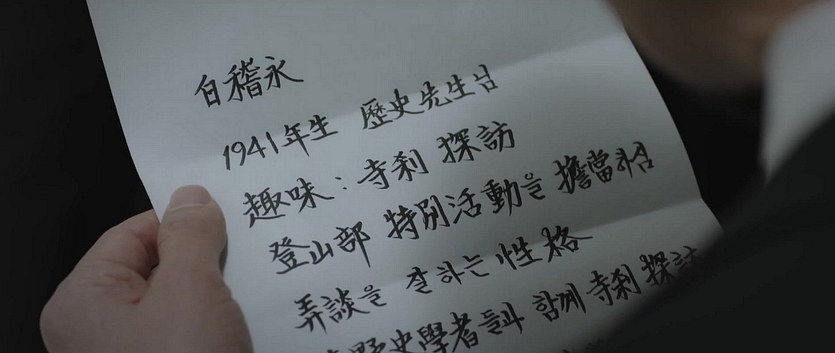 白稽永
1941年生 歷史先生님
趣味: 寺刹 探訪
登山部 特別活動을 擔當하심
弄談을 잘하는 性格
野史學者들과 함께 寺刹 探訪